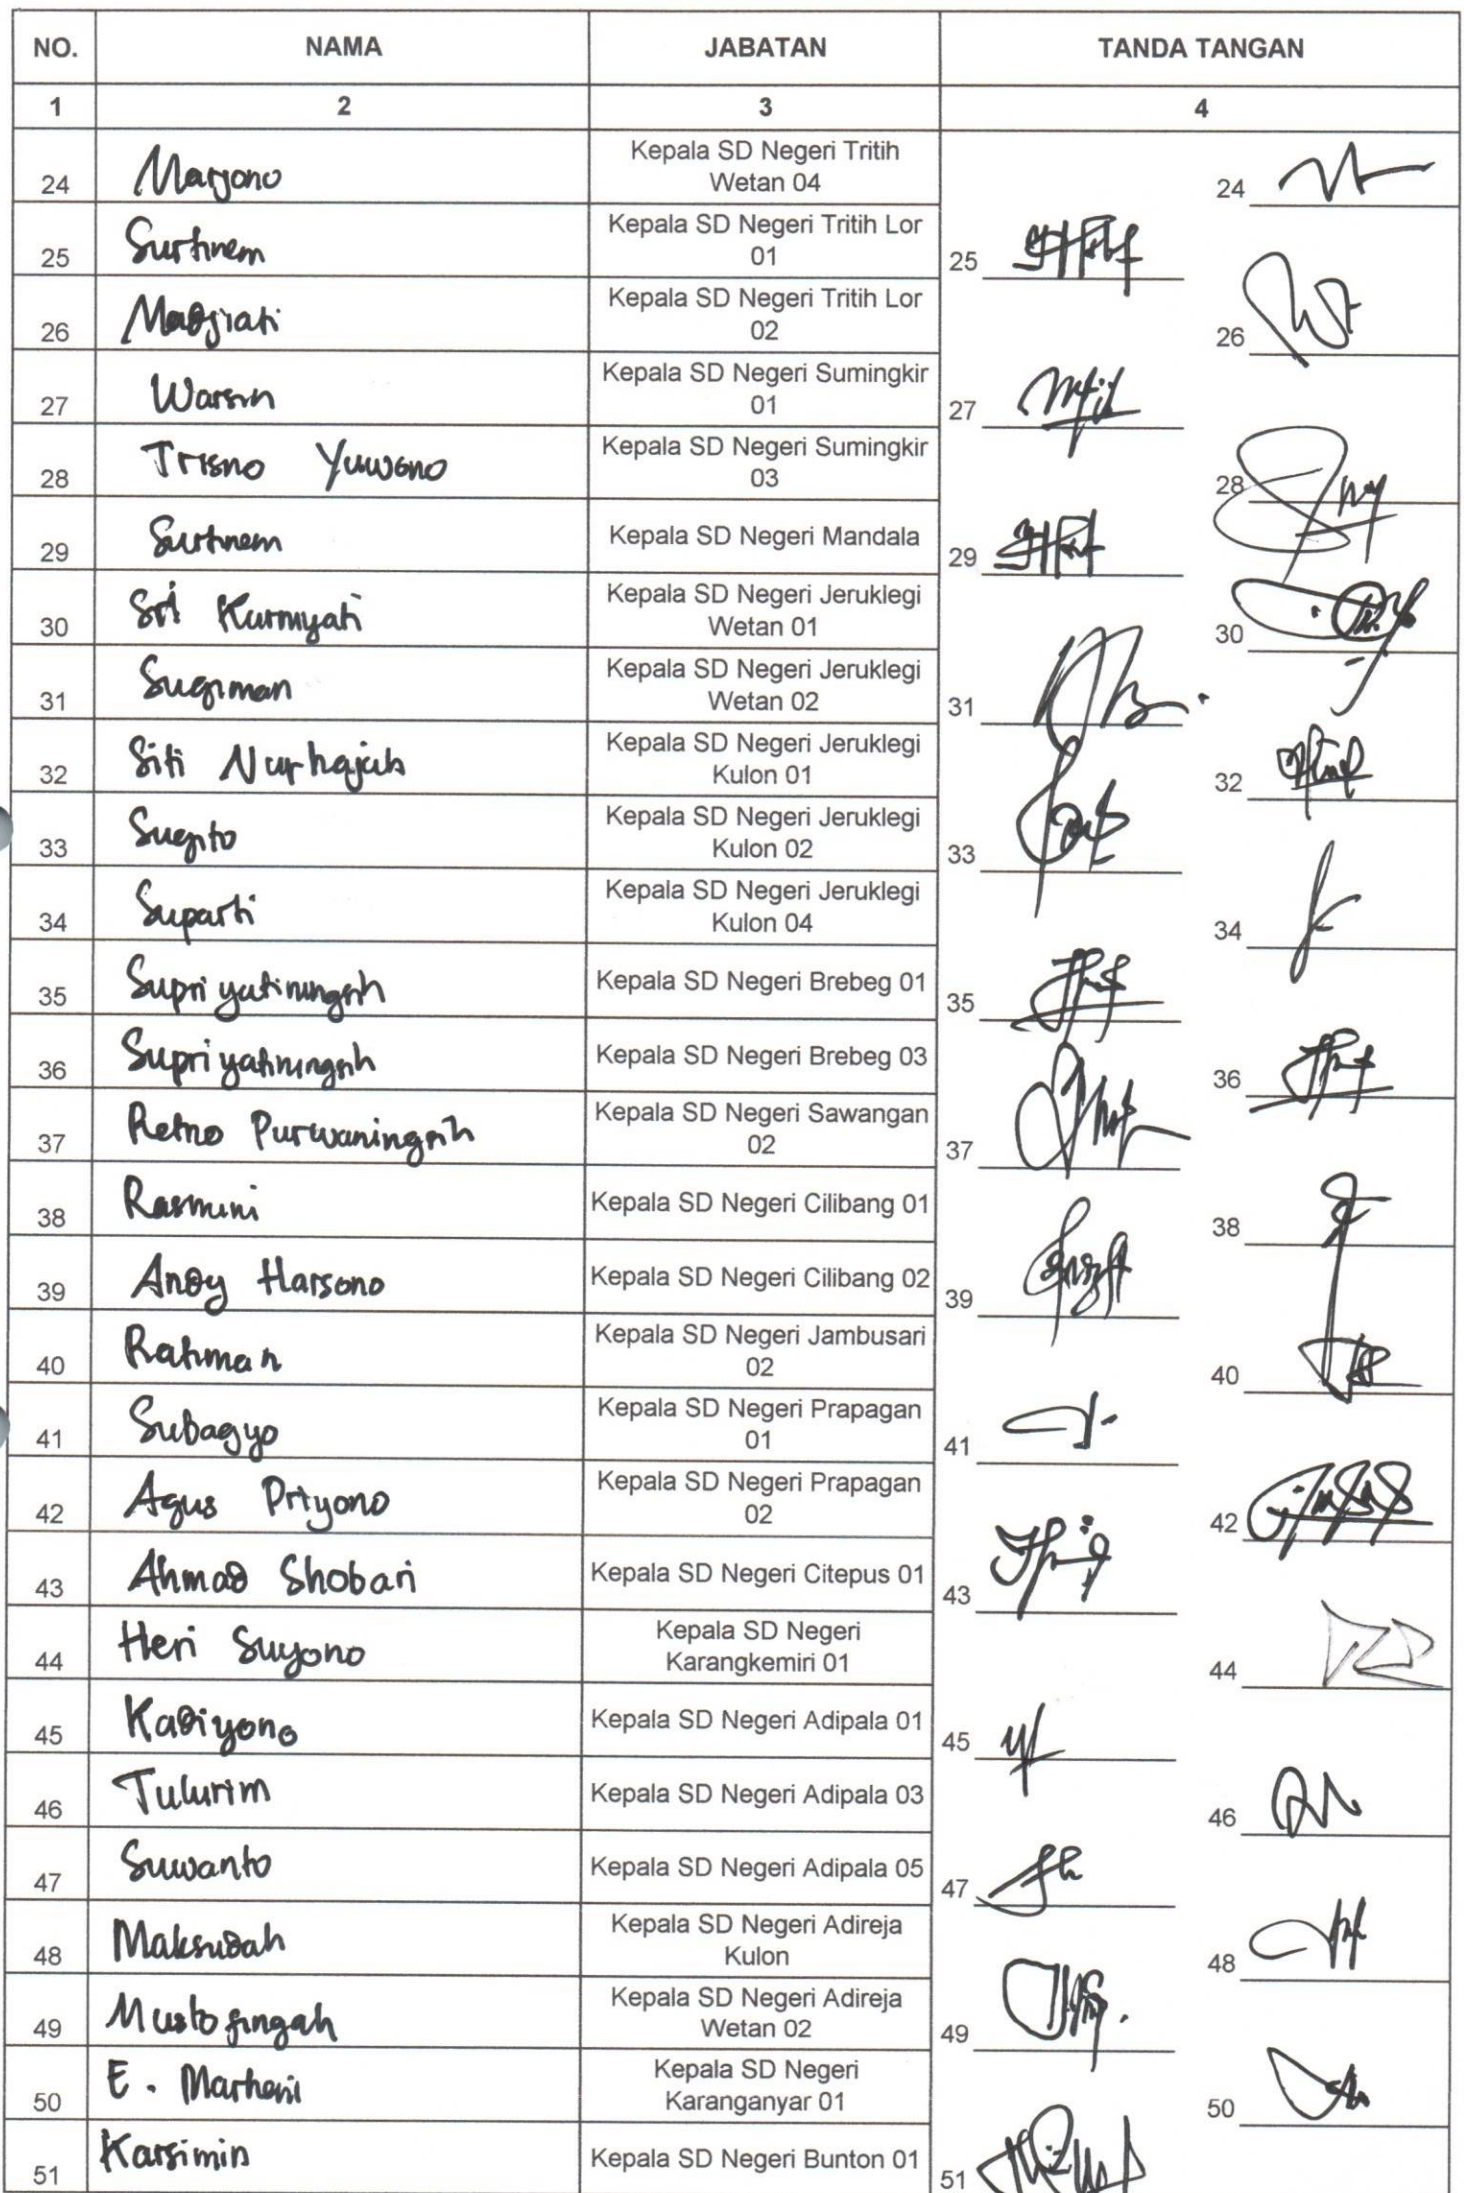 NO. NAMA JABATAN TANDA TANGAN
1 2 3 4
24 Marjono Kepala SD Negeri Tritih Wetan 04 24
25 Surtinem Kepala SD Negeri Tritih Lor 01 25
26 Madjiati Kepala SD Negeri Tritih Lor 02 26
27 Warsin Kepala SD Negeri Sumingkir 01 27
28 Trisno Yuwono Kepala SD Negeri Sumingkir 03 28
29 Surtinem Kepala SD Negeri Mandala 29
30 Sri Kurniyati Kepala SD Negeri Jeruklegi Wetan 01 30
31 Sugiman Kepala SD Negeri Jeruklegi Wetan 02 31
32 Siti Nurhajah Kepala SD Negeri Jeruklegi Kulon 01 32
33 Sugito Kepala SD Negeri Jeruklegi Kulon 02 33
34 Suparti Kepala SD Negeri Jeruklegi Kulon 04 34
35 Supriyatiningsih Kepala SD Negeri Brebeg 01 35
36 Supriyatiningsih Kepala SD Negeri Brebeg 03 36
37 Retno Purwaningsih Kepala SD Negeri Sawangan 02 37
38 Rasmini Kepala SD Negeri Cilibang 01 38
39 Andy Harsono Kepala SD Negeri Cilibang 02 39
40 Ratiman Kepala SD Negeri Jambusari 02 40
41 Subagyo Kepala SD Negeri Prapagan 01 41
42 Agus Priyono Kepala SD Negeri Prapagan 02 42
43 Ahmad Shobari Kepala SD Negeri Citepus 01 43
44 Heri Suyono Kepala SD Negeri Karangkemiri 01 44
45 Kadiyono Kepala SD Negeri Adipala 01 45
46 Tulurim Kepala SD Negeri Adipala 03 46
47 Suwanto Kepala SD Negeri Adipala 05 47
48 Maksudah Kepala SD Negeri Adireja Kulon 48
49 Mustofingah Kepala SD Negeri Adireja Wetan 02 49
50 E. Marheni Kepala SD Negeri Karanganyar 01 50
51 Karsimin Kepala SD Negeri Bunton 01 51